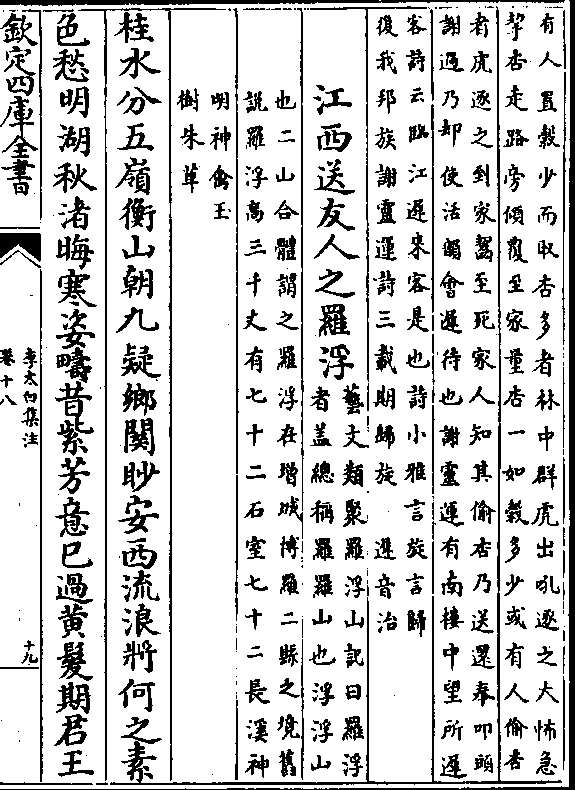 有人置穀少而取杏多者林中群虎出吼逐之大怖急
挈杏走路旁傾覆至家量杏一如穀多少或有人偷杏
者虎逐之到家齧至死家人知其偷杏乃送還奉叩頭
謝過乃却使活觸會遲待也謝靈運有南樓中望所遲
客詩云臨江遲来客是也詩小雅言旋言歸
後我邦族謝靈運詩三載期歸旋 遲音治
江西送友人之羅浮
藝文類聚羅浮山記曰羅浮
者盖總稱羅羅山也浮浮山
也二山合體謂之羅浮在増城博羅二縣之境舊
說羅浮髙三千丈有七十二石室七十二長溪神
明神禽玉
樹朱草
桂水分五嶺衡山朝九疑鄉關眇安西流浪將何之素
色愁明湖秋渚晦寒姿疇昔紫芳意已過黄髮期君王
欽定四庫全書
李太白集注
卷十八
十九